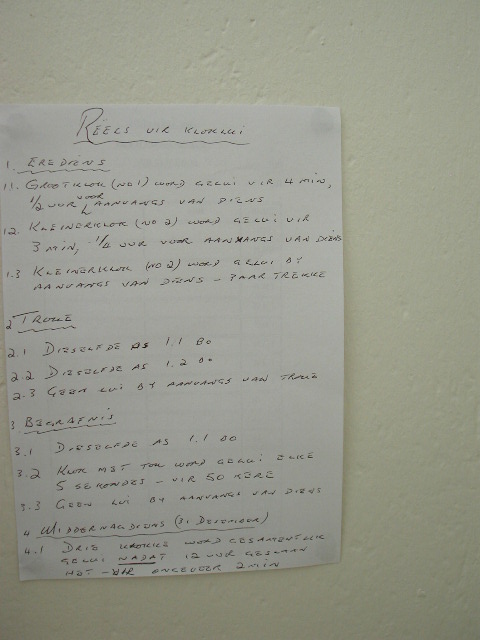 REËLS VIR KLOKLUI
1. EREDIENS
1.1. GROOTKLOK (NO 1) WORD GELUI VIR 4 MIN,
1/2 UUR VOOR AANVANGS VAN DIENS
1.2. KLEINERKLOK (NO 2) WORD GELUI VIR
3 MIN, - 1/4 UUR VOOR AANVANGS VAN DIENS
1.3 KLEINERKLOK (NO 2) WORD GELUI BY
AANVANGS VAN DIENS - PAAR TREKKE
2 TROUE
2.1 DIESELFDE AS 1.1 BO
2.2 DIESELFDE AS 1.2 BO
2.3 GEEN LUI BY AANVANGS VAN TROUE
3 BEGRAFNIS
3.1 DIESELFDE AS 1.1 BO
3.2 KLOK MET TOU WORD GELUI ELKE
5 SEKONDES - VIR 50 KERE
3.3 GEEN LUI BY AANVANGS VAN DIENS
4 MIDDERNAGDIENS (31 DESEMBER)
4.1 DRIE KLOKKE WORD GESAMENTLIK
GELUI NADAT 12 UUR GESLAAN
HET - VIR ONGEVEER 2 MIN